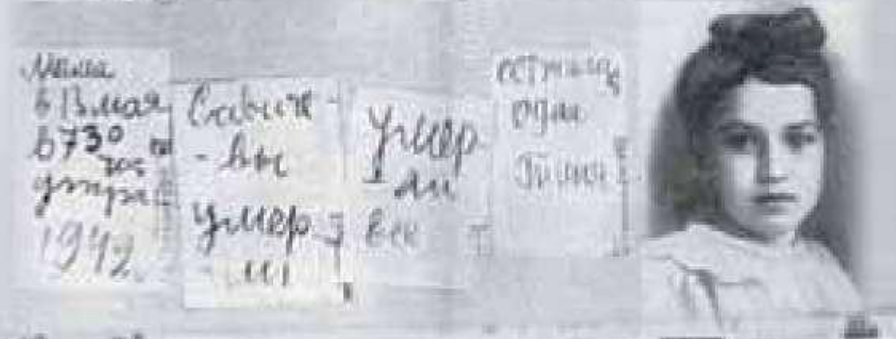 Мама
в 13 мая
в 730
час
утра
1942
Савиче
-вы
умер
-ли
Умер
-ли
все
осталась
одна
Таня